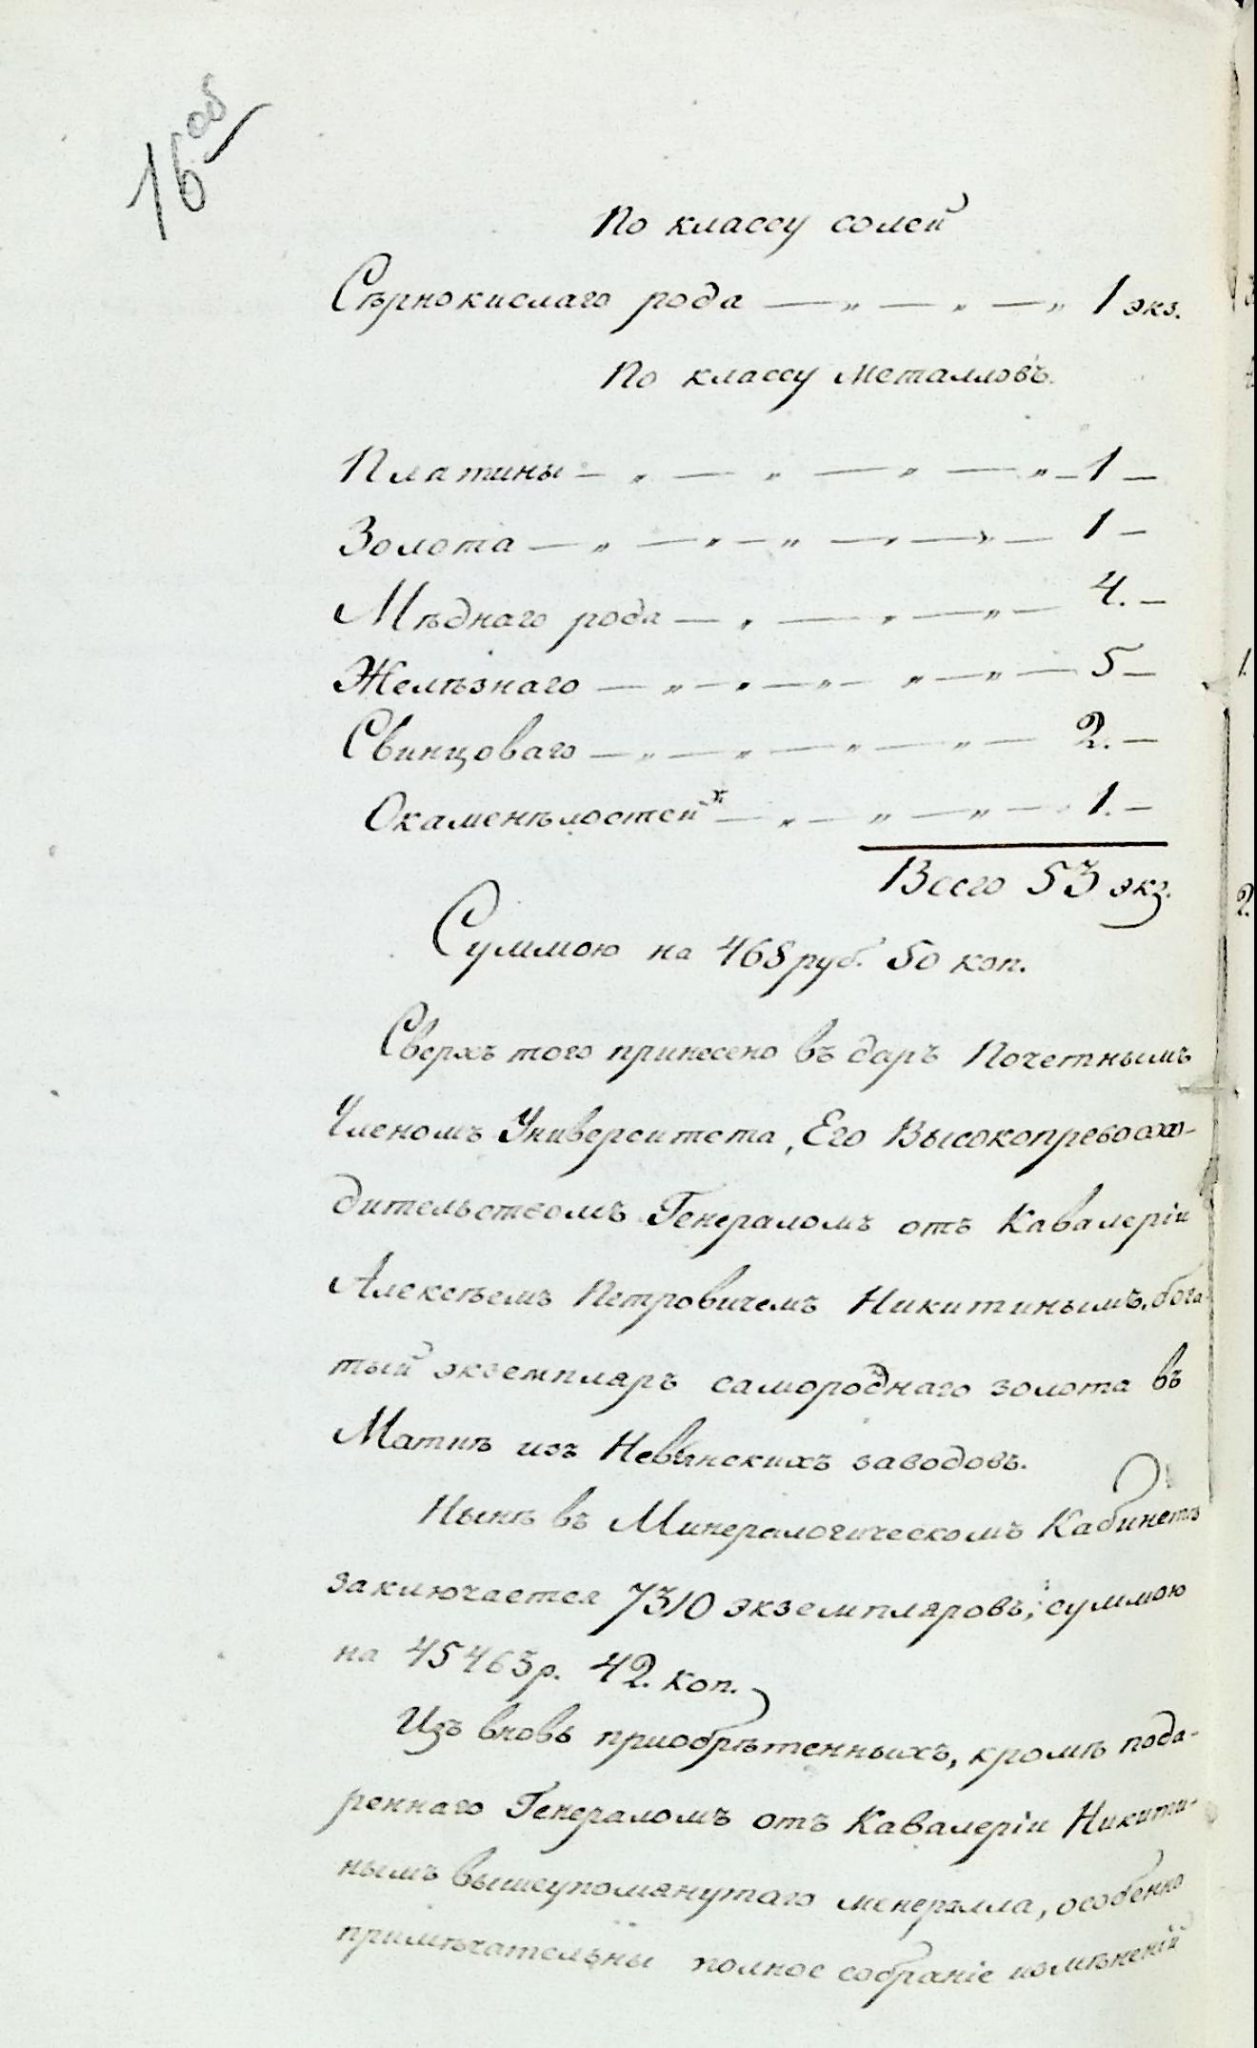 16 об
По классу солей
Сѣрнокислаго рода — „ — „ — „ 1 экз.
По классу Металловъ.
Платины — „ — „ — „ — „ — 1 —
Золота — „ — „ — „ — „ — „ — 1 —
Мѣднаго рода — „ — „ — „ — 4. —
Желѣзнаго — „ — „ — „ — „ — „ — 5 —
Свинцоваго — „ — „ — „ — „ — 2. —
Окаменѣлостей — „ — „ — „ — 1. —
Всего 53 экз.
Суммою на 468 руб. 50 коп.
Сверхъ того принесено въ даръ Почетнымъ
Членомъ Университета, Его Высокопревосхо-
дительствомъ Генераломъ отъ Кавалеріи
Алексѣемъ Петровичемъ Никитинымъ, бога-
тый экземпляръ самороднаго золота въ
Маткѣ изъ заводовъ.
Нынѣ въ Минералогическомъ Кабинетѣ
заключается 7310 экземпляровъ, суммою
на 45463 р. 42. коп.
Изъ вновь приобрѣтенныхъ, кромѣ пода-
реннаго Генераломъ отъ Кавалеріи Никити-
нымъ вышеупомянутаго минералла, особенно
примѣчательны полное собраніе измѣненій